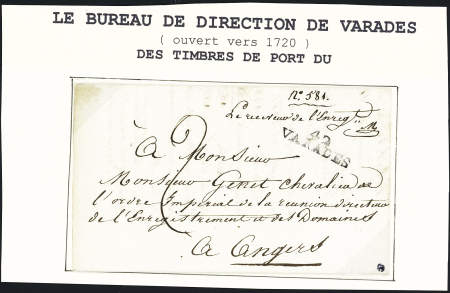 LE BUREAU DE DIRECTION DE VARADES
( ouvert vers 1720 )
DES TIMBRES DE PORT DU
N.° 581.
Le receveur de l'Enreg.
42
VARADES
2
à Monsieur
Monsieur Genet chevalier de
l'ordre Impérial de la reunion directeur
de l'Enregistrement et des Domaines
à Angers